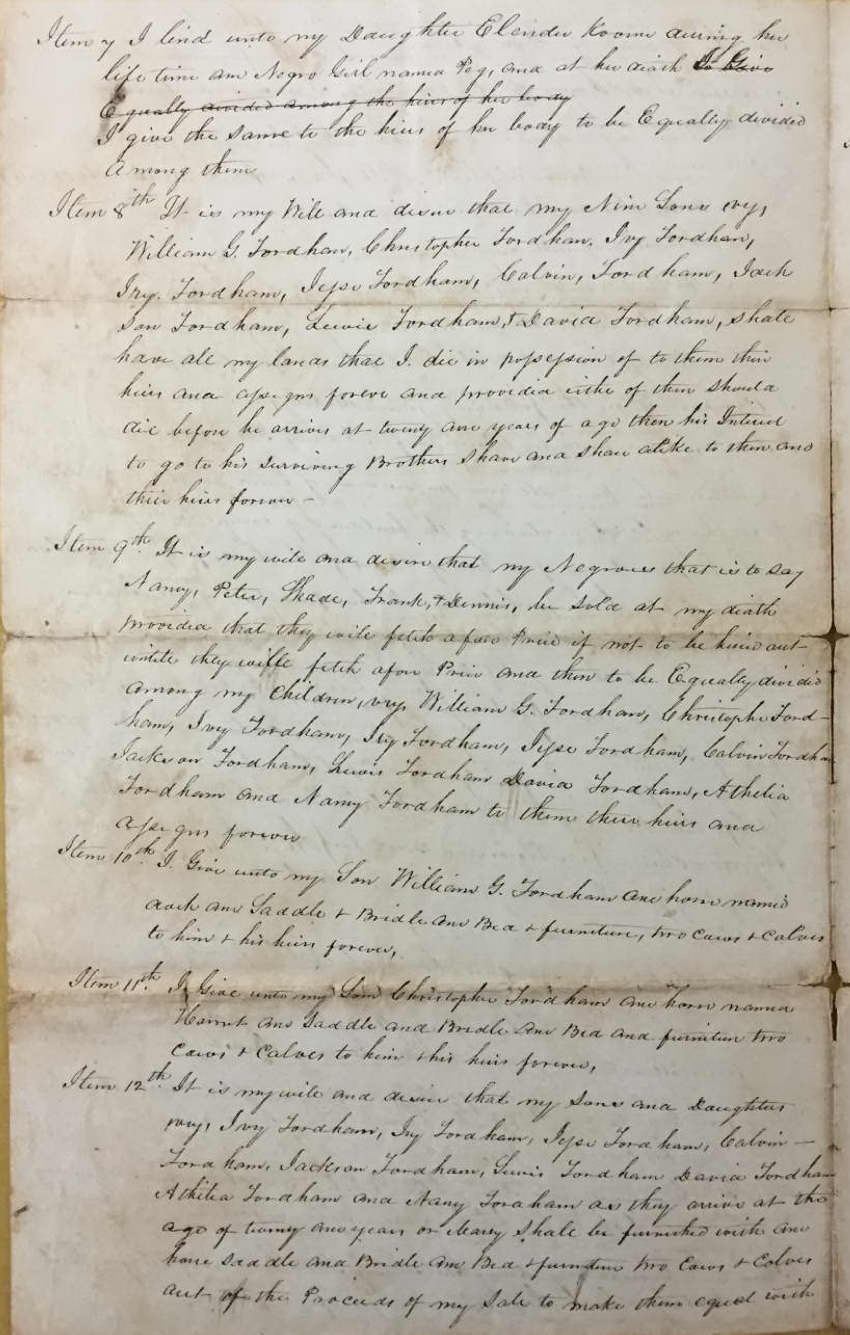 Item 7 I lend unto my Daughter Elender Koonce during her
life time one Negro Girl named Peg, and at her death to Give
Equally divided among the heirs of her body
I give the same to the heirs of her body to be Equally divided
among them
Item 8th It is my Will and desire that my Nine Sons vzy,
William G. Fordham, Christopher Fordham, Ivy Fordham,
Izy. Fordham, Jesse Fordham, Calvin, Fordham, Jack
Son Fordham, Lewis Fordham, & David Fordham, shale
have all my lands that I. die in possession of to them their
heirs and assigns forever and provided either of them should
die before he arrives at twenty one years of age then his Interest
to go to his surviving Brothers share and share alike to them and
their heirs forever –
Item 9th. It is my wile and desire that my Negroes that is to say
Nancy, Peter, Shade, Frank, & Dennis, be sold at my death
provided that they wile fetch a fare Price if not to be hired out
untile they wille fetch a fare Price and then to be Equally divided
among my Children, vzy, William G. Fordham, Christopher Ford-
ham, Ivey Fordham, Izy Fordham, Jesse Fordham, Calvin Fordham
Jackson Fordham, Lewis Fordham David Fordham, Athelia
Fordham and Nancy Fordham to them their heirs and
assigns forever
Item 10th. I. Give unto my Son William G. Fordham one horse named
one Saddle & Bridle one Bed & furniture, two Cows & Calves
to him & his heirs forever,
Item 11th. I Give unto my Son Christopher Fordham one horse named
Hornet one Saddle and Bridle one Bed and furniture two
Cows & Calves to him & his heirs forever,
Item 12th. It is my wile and desire that my Sons and Daughters
vzy, Ivy Fordham, Izy Fordham, Jesse Fordham, Calvin –
Fordham, Jackson Fordham, Lewis Fordham David Fordham
Athelia Fordham and Nancy Fordham as they arrive at the
age of twenty one years or Marry shale be furnished with one
horse saddle and Bridle one Bed & furniture two Cows & Calves
out of the Proceeds of my Sale to make them equal with